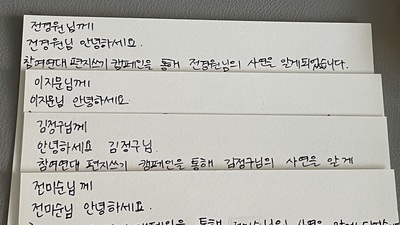 전경원님께
전경원님 안녕하세요.
참여연대 편지쓰기 캠페인을 통해 전경원님의 사연을 알게되었습니다.
이지문님께
이지문님 안녕하세요.
김정구님께
안녕하세요 김정구님.
참여연대 편지쓰기 캠페인을 통해 김정구님의 사연을 알게
전미순님께
전미순님 안녕하세요.
통해